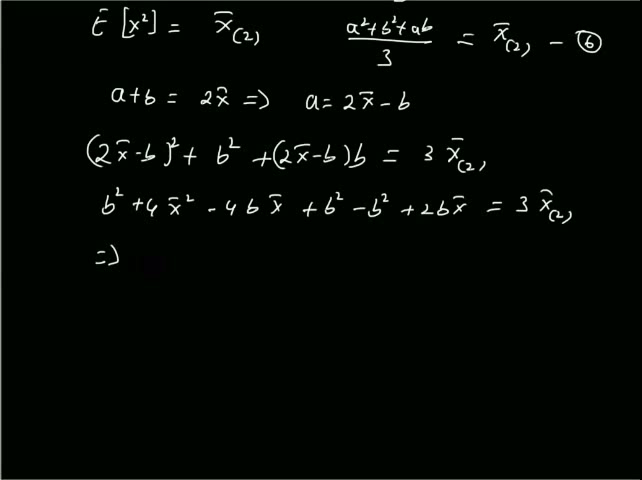 E [x²] = x̄₍₂₎ (a²+b²+ab)/3 = x̄₍₂₎ - ⑥
a+b = 2x̄ => a = 2x̄ - b
(2x̄-b)² + b² + (2x̄-b)b = 3 x̄₍₂₎
b² + 4x̄² - 4bx̄ + b² - b² + 2bx̄ = 3 x̄₍₂₎
=>